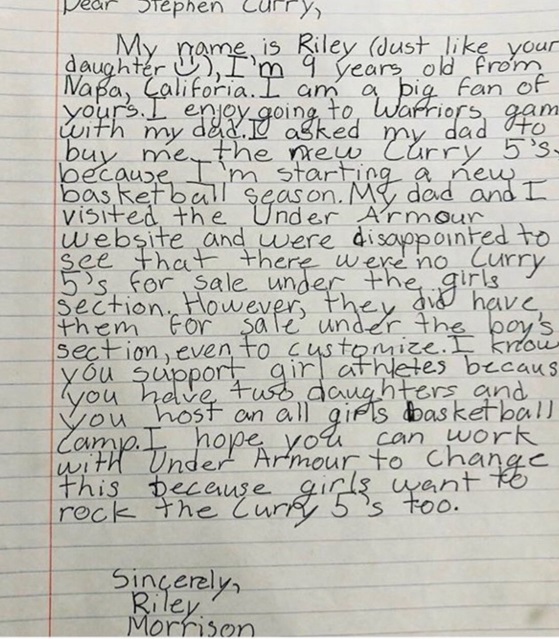 Dear Stephen Curry,
My name is Riley (Just like your
daughter ☺), I'm 9 years old from
Napa, Califoria. I am a big fan of
yours. I enjoy going to Warriors gam
with my dad. I asked my dad to
buy me the new Curry 5's
because I'm starting a new
basketball season. My dad and I
visited the Under Armour
website and were disappointed to
see that there were no Curry
5's for sale under the girls
section. However, they did have
them for sale under the boy's
section, even to customize. I know
you support girl athletes becaus
you have two daughters and
you host an all girls basketball
camp. I hope you can work
with Under Armour to change
this because girls want to
rock the Curry 5's too.
Sincerely,
Riley
Morrison